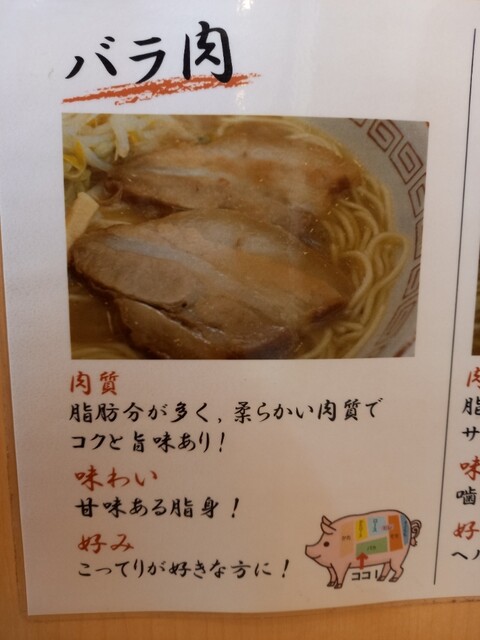 バラ肉
肉質
脂肪分が多く、柔らかい肉質で
コクと旨味あり！
味わい
甘味ある脂身！
好み
こってりが好きな方に！
ココ！
脂
サ
味
噛
好
ヘル